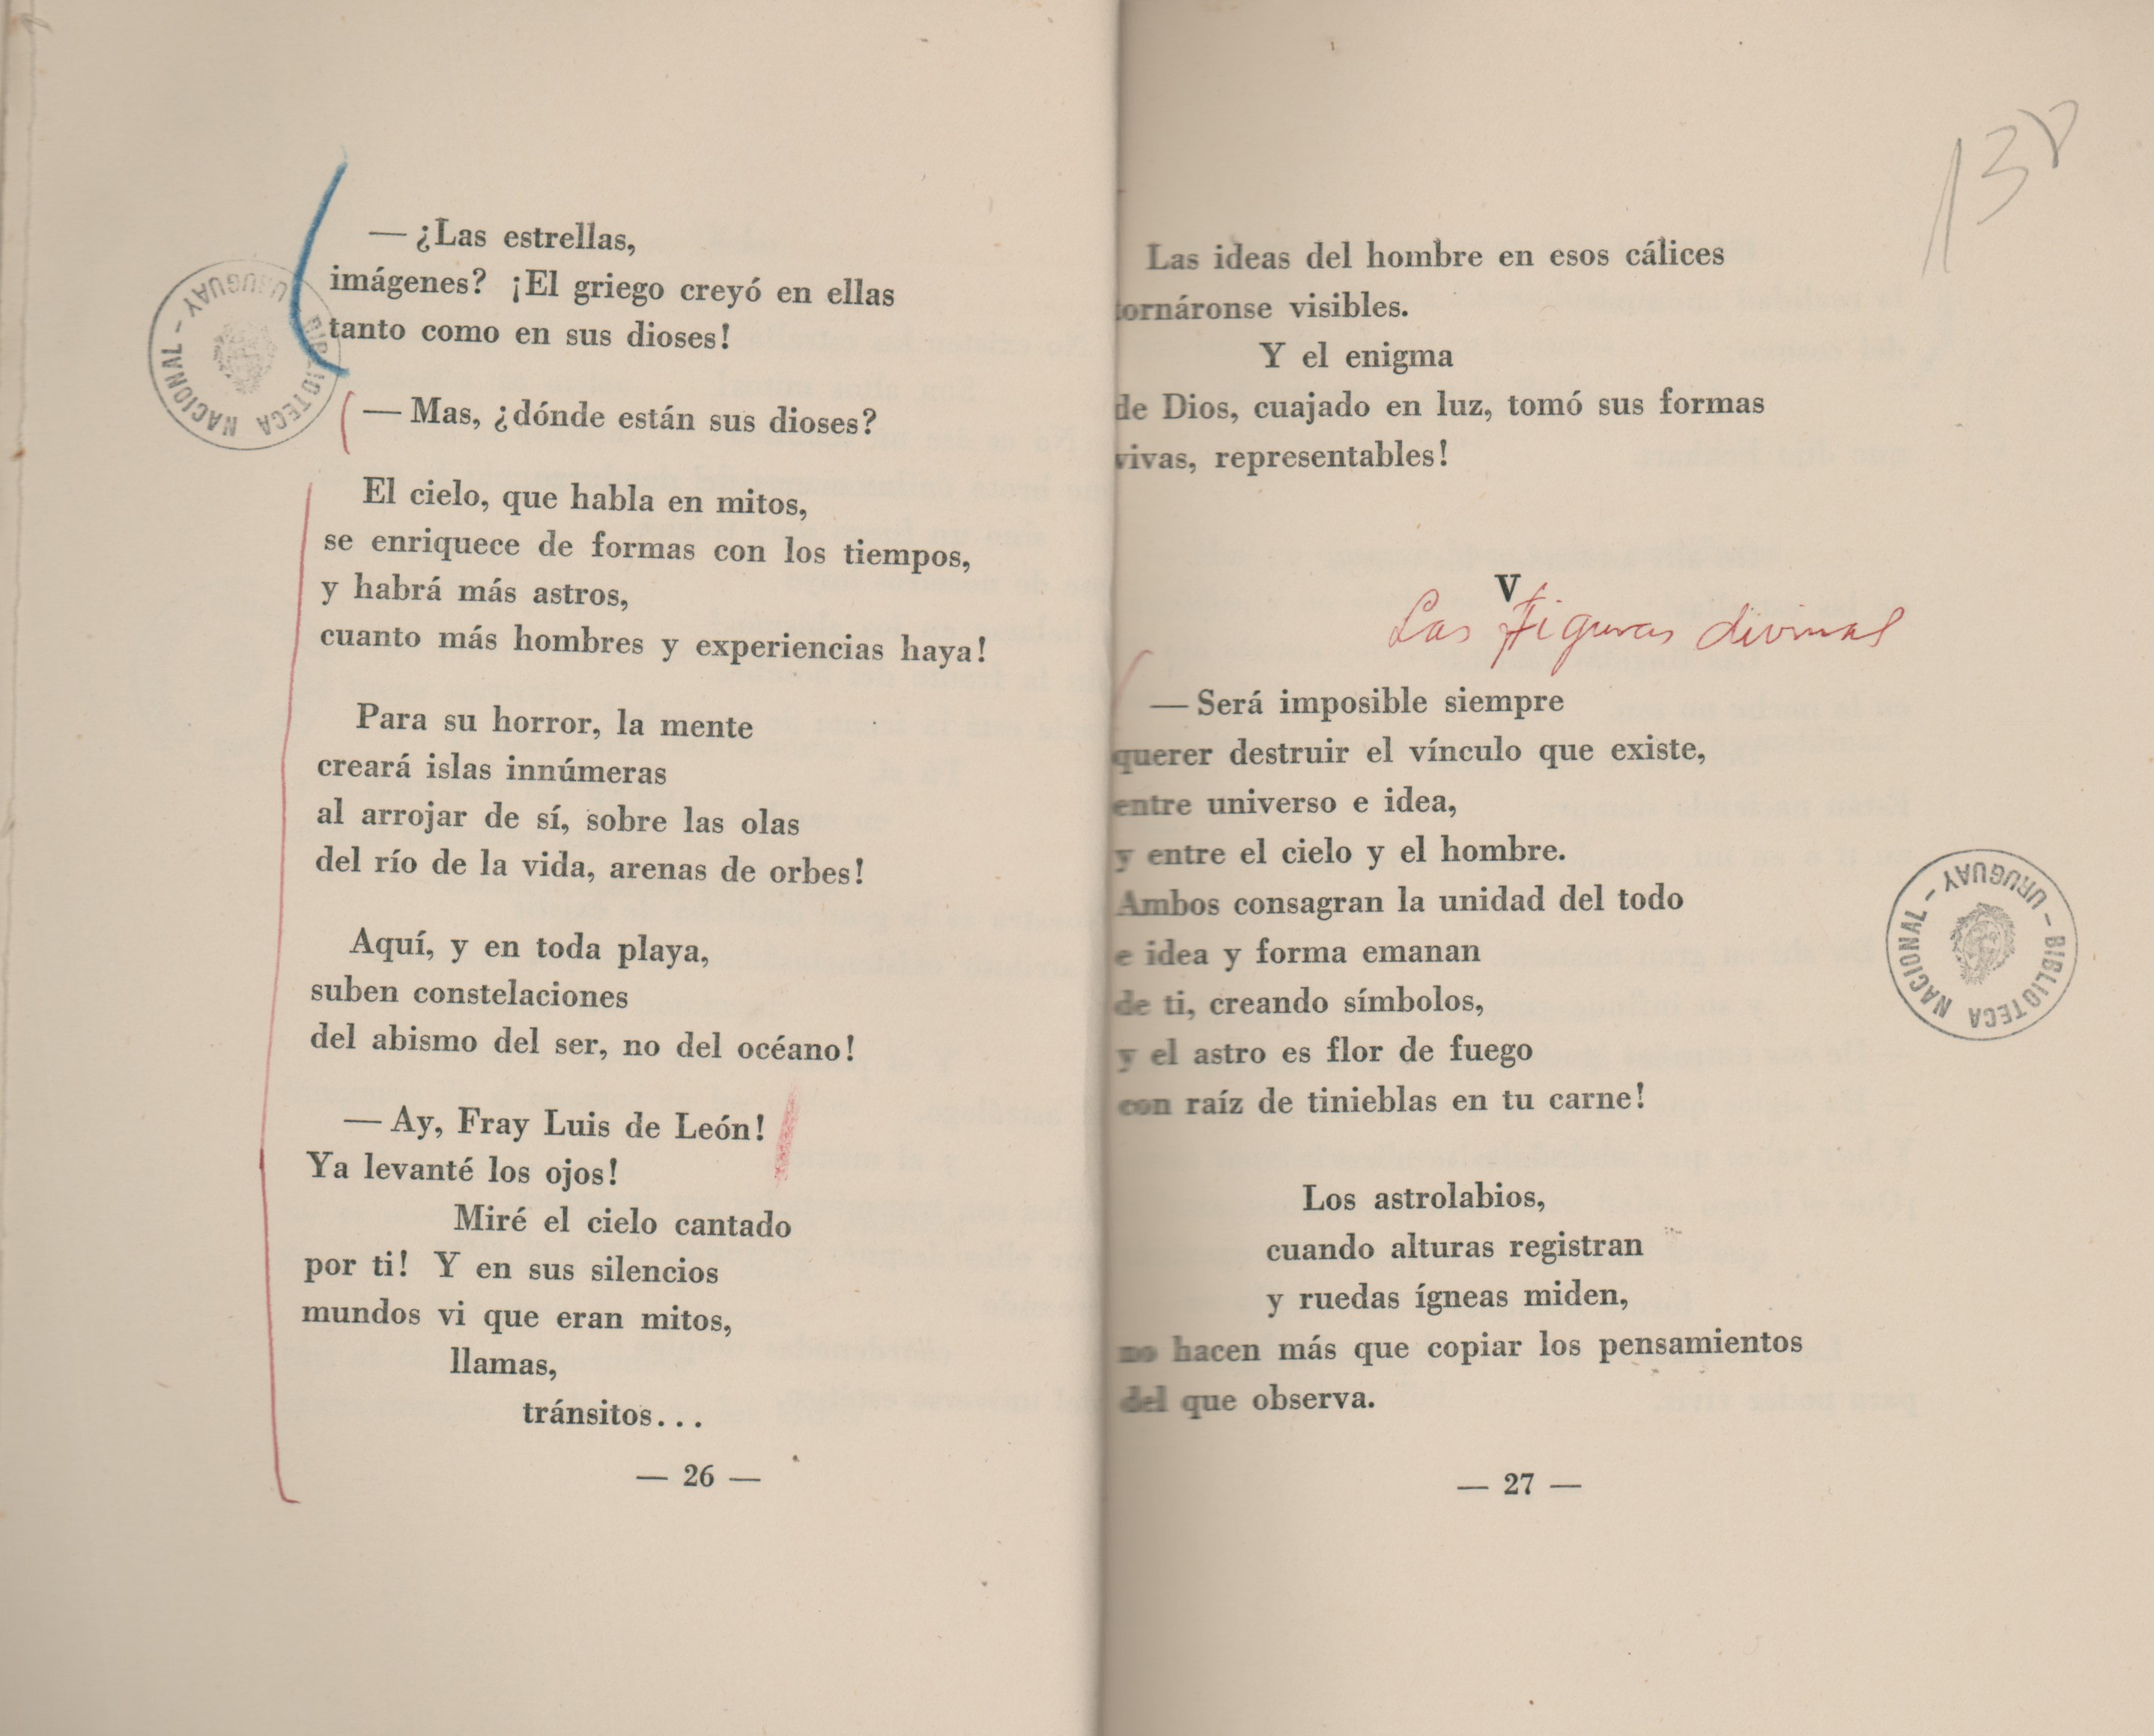 — ¿Las estrellas,
imágenes? ¡El griego creyó en ellas
tanto como en sus dioses!
— Mas, ¿dónde están sus dioses?
El cielo, que habla en mitos,
se enriquece de formas con los tiempos,
y habrá más astros,
cuanto más hombres y experiencias haya!
Para su horror, la mente
creará islas innúmeras
al arrojar de sí, sobre las olas
del río de la vida, arenas de orbes!
Aquí, y en toda playa,
suben constelaciones
del abismo del ser, no del océano!
— Ay, Fray Luis de León!
Ya levanté los ojos!
Miré el cielo cantado
por ti! Y en sus silencios
mundos vi que eran mitos,
llamas,
tránsitos...
— 26 —
BIBLIOTECA NACIONAL - URUGUAY
138
Las ideas del hombre en esos cálices
tornáronse visibles.
Y el enigma
de Dios, cuajado en luz, tomó sus formas
vivas, representables!
V
Las Figuras divinas
— Será imposible siempre
querer destruir el vínculo que existe,
entre universo e idea,
y entre el cielo y el hombre.
Ambos consagran la unidad del todo
e idea y forma emanan
de ti, creando símbolos,
y el astro es flor de fuego
con raíz de tinieblas en tu carne!
Los astrolabios,
cuando alturas registran
y ruedas ígneas miden,
no hacen más que copiar los pensamientos
del que observa.
— 27 —
BIBLIOTECA NACIONAL - URUGUAY -